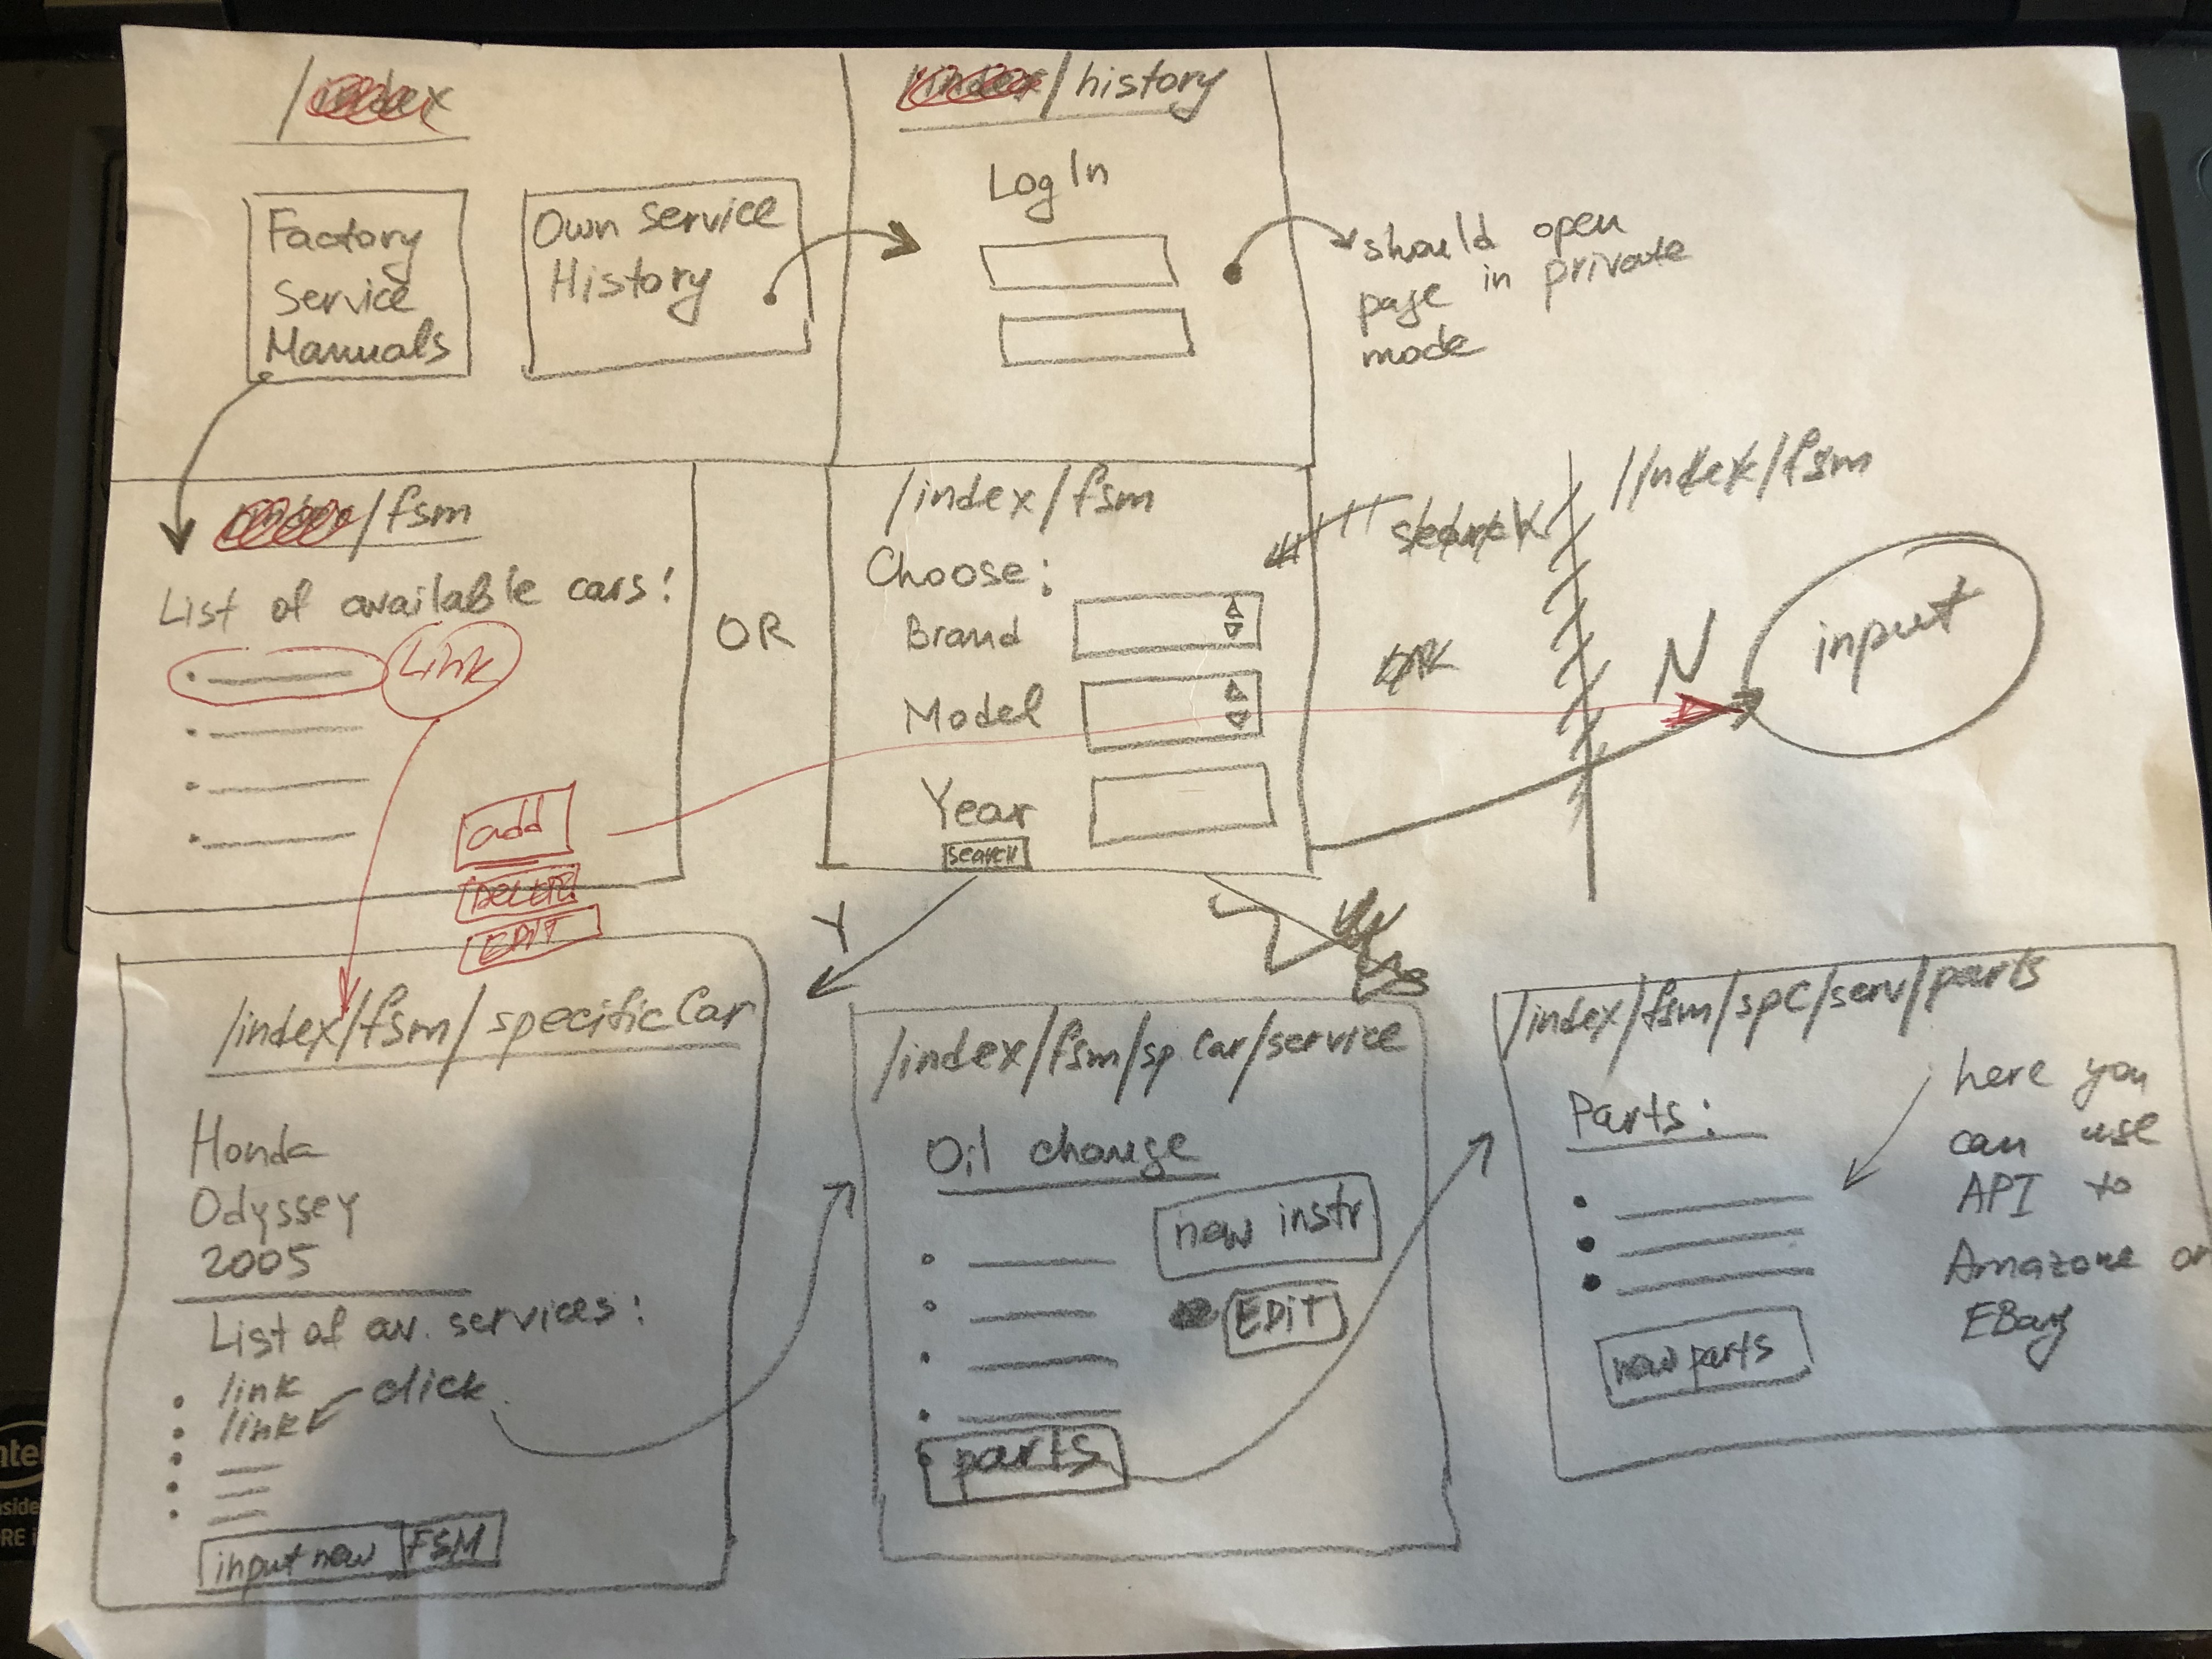 /index
Factory
Service
Manuals
Own service
History
/index/history
Log In
should open
page in private
mode
/fsm
List of available cars:
Link
add
DELETE
EDIT
OR
/index/fsm
Choose:
Brand
Model
Year
SEARCH
Y
/index/fsm
N
input
/index/fsm/specificCar
Honda
Odyssey
2005
List of av. services:
link
link click
input new FSM
/index/fsm/sp.Car/service
Oil change
new instr
EDIT
parts
/index/fsm/spC/serv/parts
Parts:
new parts
here you
can use
API to
Amazone or
EBay